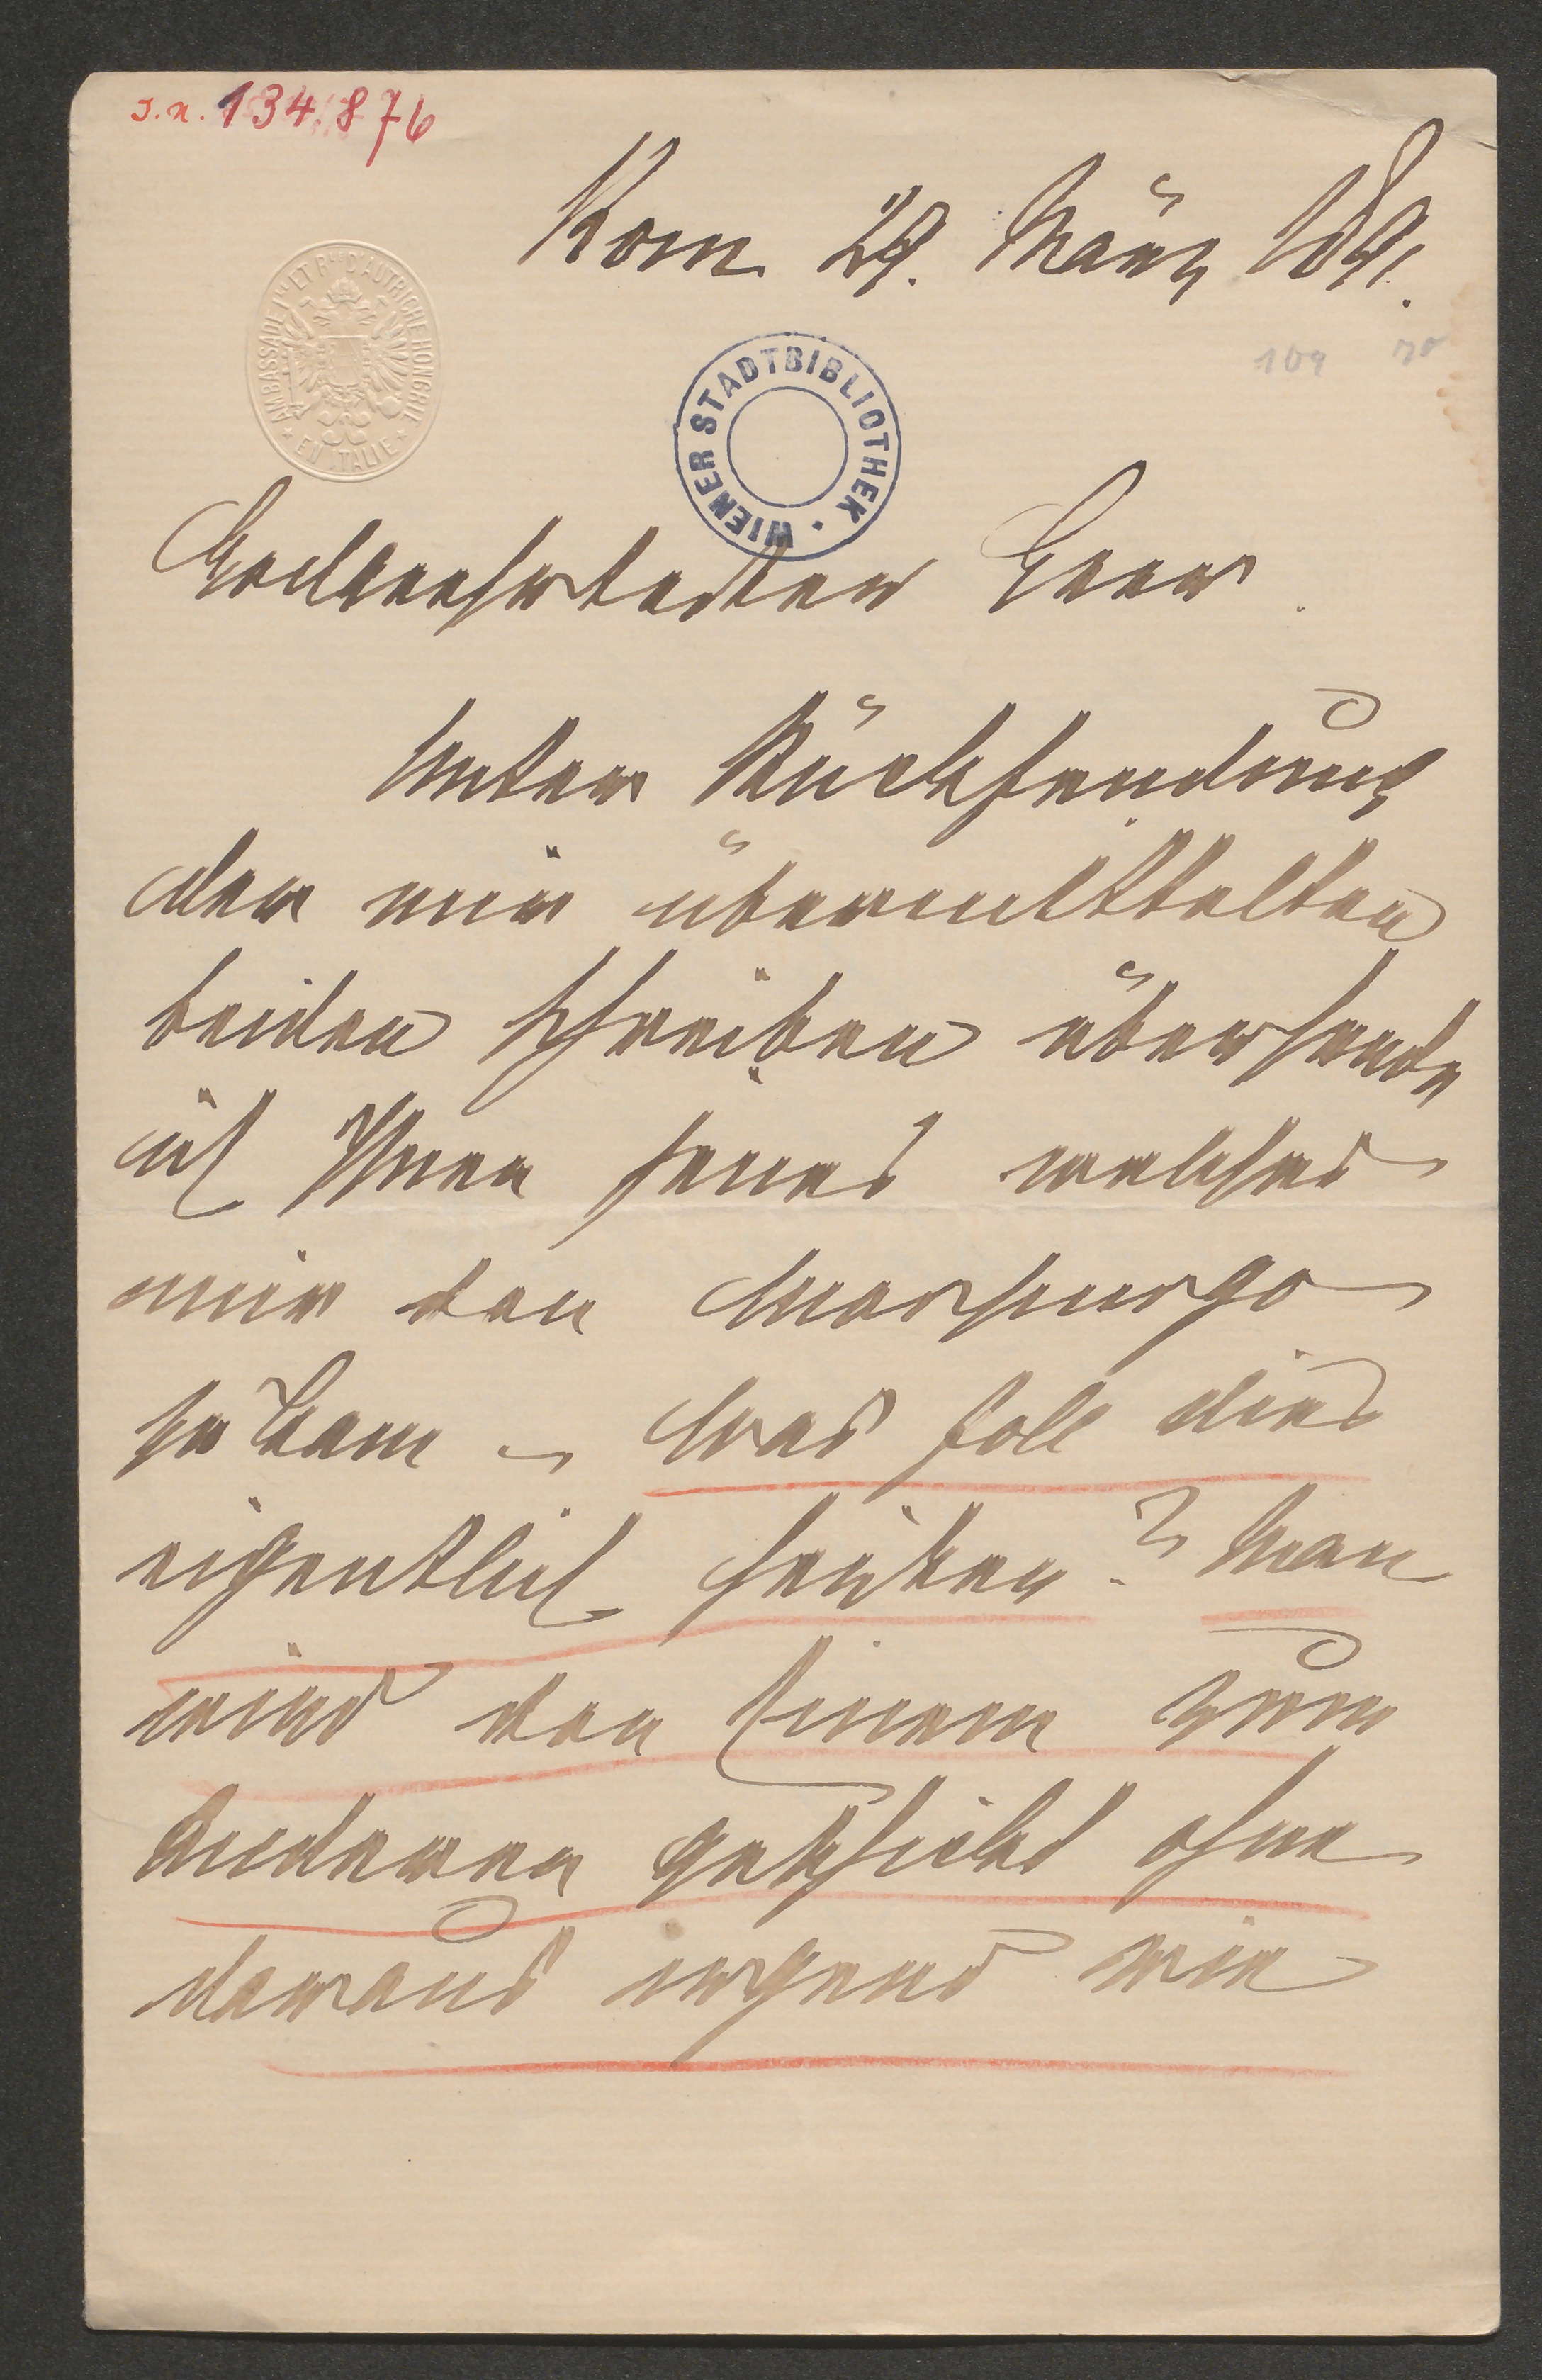 I.N. 134.876
Rom 29. März 1891.
109
AMBASSADE I.le ET R.le D'AUTRICHE HONGRIE
* EN ITALIE *
WIENER STADTBIBLIOTHEK
Hochverehrtester Herr
Unter Rücksendung
der mir übermittelten
beiden Schreiben übersende
ich Ihnen jenes welches
mir von Morpurgo
zukam – Was soll dies
eigentlich heißen? Man
wird von Einem zum
Anderen geschickt ohne
daraus irgend wie